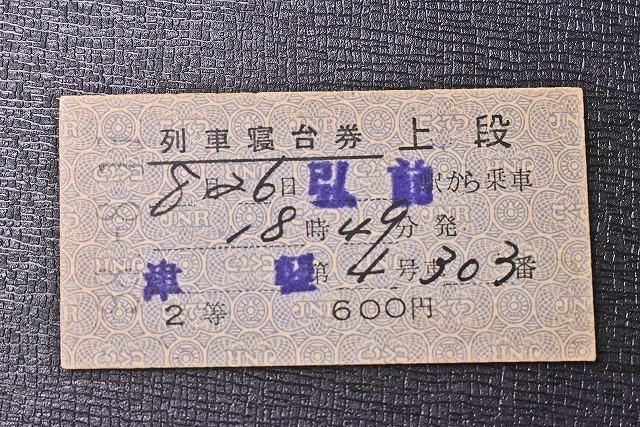 列車寝台券 上段
8月26日 弘前 駅から乗車
18時49分発
津軽 第4号車303番
2等 600円
JNR